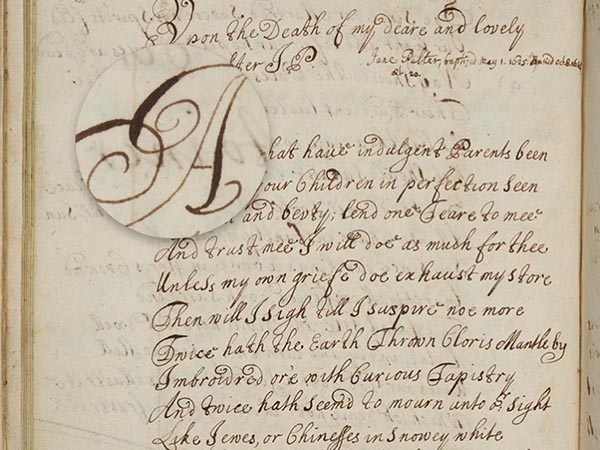 Vpon the Death of my deare and lovely
ter J.P Jane Pulter, May 1. 1625.
æt. 20.
A
hat have indulgent Parents been
your Children in perfection seen
and bevty; lend one Teare to mee
And trust mee I will doe as much for thee
Unless my own griefe doe exhaust my store
Then will I sigh till I suspire noe more
Twice hath the Earth Thrown Cloris Mantle by
Imbroidred or'e with Curious Tapistry
And twice hath seemd to mourn unto or sight
Like Jewes, or Chinesses in snowey white